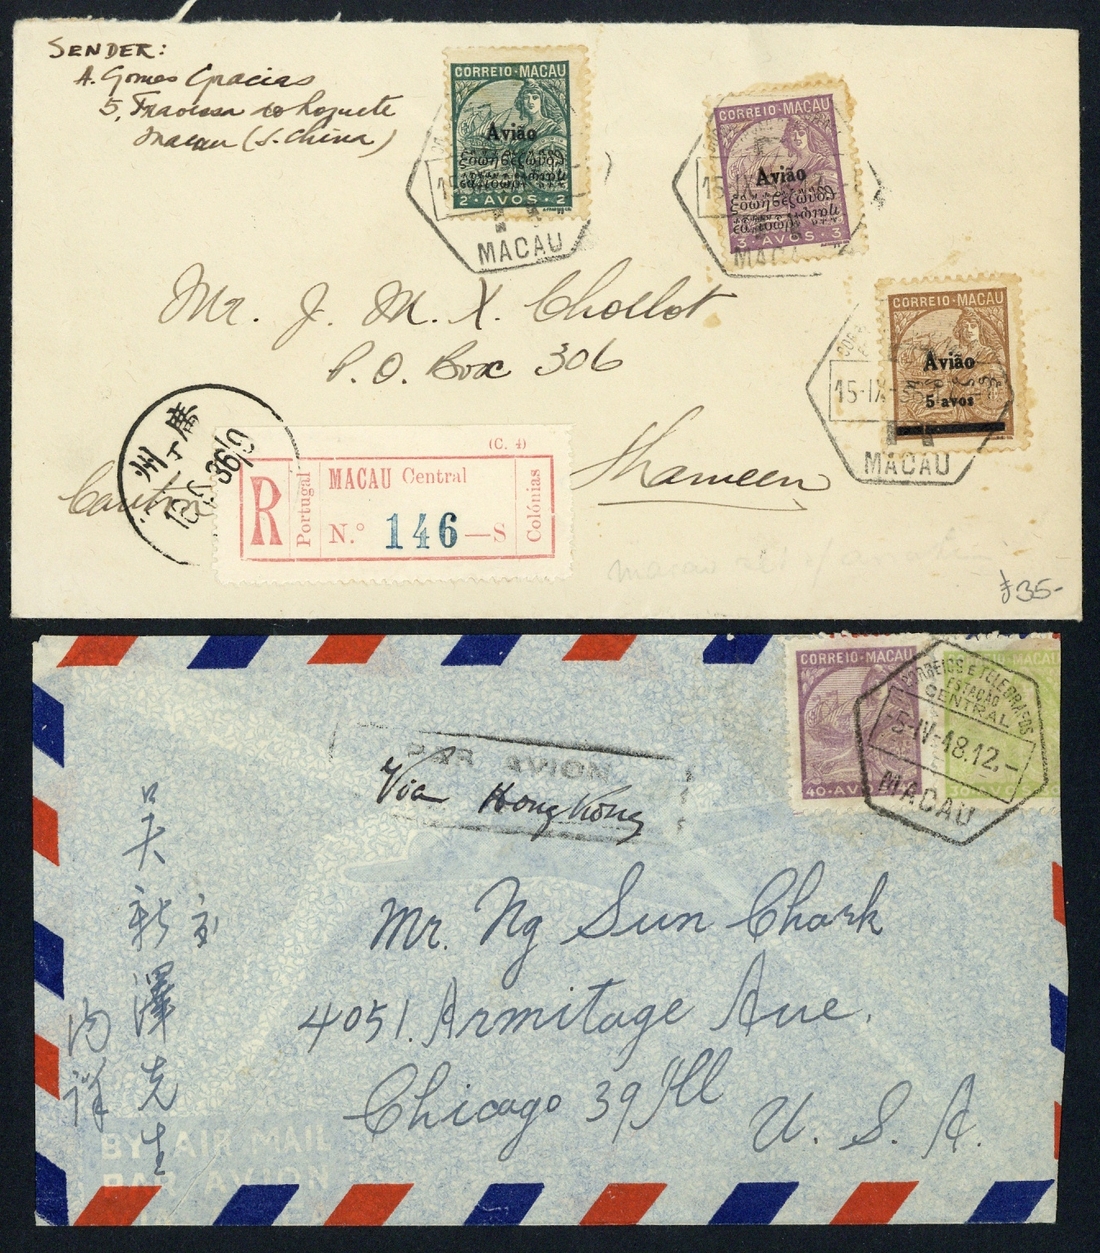 SENDER:
A. Gomes Gracias
5, Travessa do Roquete
Macau (S. China)
CORREIO·MACAU
Avião
2·AVOS·2
MACAU
CORREIO·MACAU
Avião
3·AVOS·3
MACA
CORREIO·MACAU
Avião
5 avos
15-IX-36
MACAU
Mr. J. M. X. Chollot
P.O. Box 306
Shameen
Canton
廣州
(C. 4)
R
Portugal
MACAU Central
N.º 146—S
Colónias
£35-
CORREIO·MACAU
40·AVO
CORREIOS E TELEGRAFOS
ESTAÇÃO
CENTRAL
-5-IV-48.12,-
MACAU
PAR AVION
Via Hong Kong
Mr. Ng Sun Chark
4051. Armitage Ave.
Chicago 39 Ill
U. S. A.
吳新澤先生
內詳
BY AIR MAIL
PAR AVION